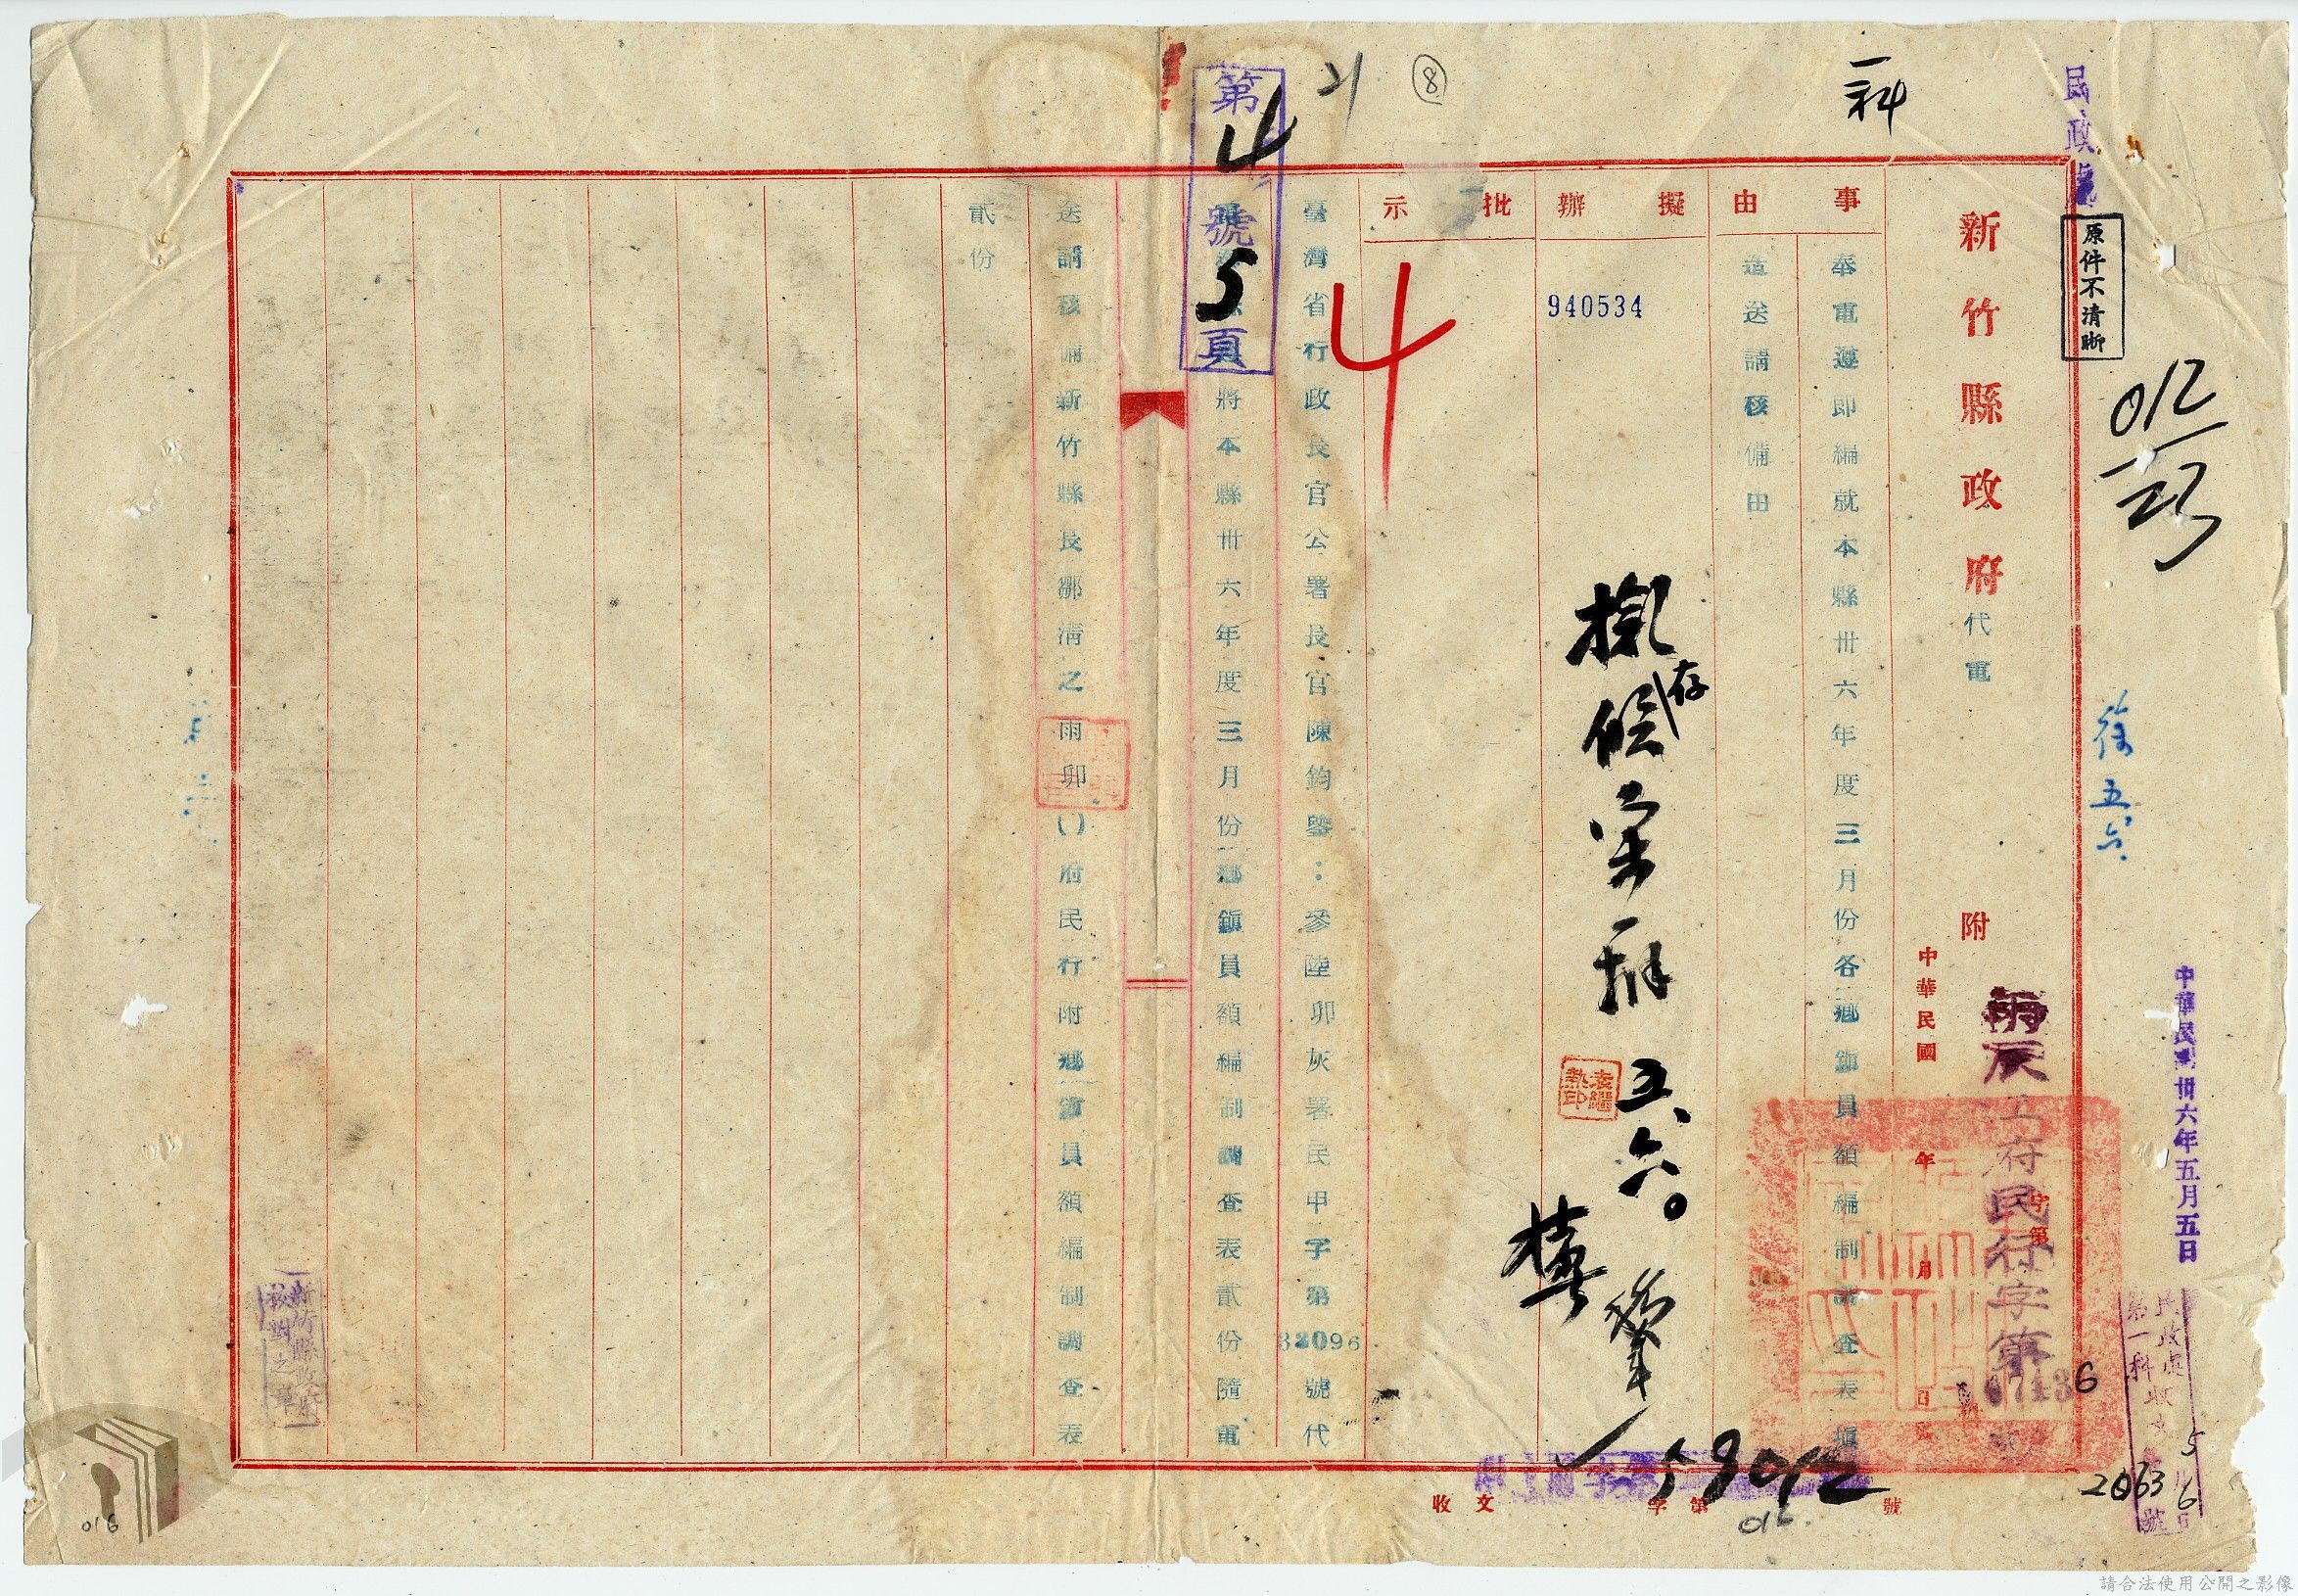 民政處
一科
原件不清晰
012
23
徐 五、六.
中華民國卅六年五月五日
民政處收文
第一科
5
6
2063
號
新竹縣政府代電
附
中華民國 年 月 日
字第
府民行字第
6
號
事由
奉電遵即編就本縣卅六年度三月份各鄉鎮員額編制調查表
造送請核備由
擬辦
940534
擬
存
五、六。
袁繼熱印
批示
4
收文 字第 號
15902
⑧
21
第4號5頁
臺灣省行政長官公署長官陳鈞鑒：參陸卯灰署民甲字第32096號代
將本縣卅六年度三月份鄉鎮員額編制調查表貳份隨電
送請核備新竹縣長鄒清之雨卯()府民行附鄉鎮員額編制調查表
貳份
新竹縣政府
校對之章
016
請合法使用公開之影像